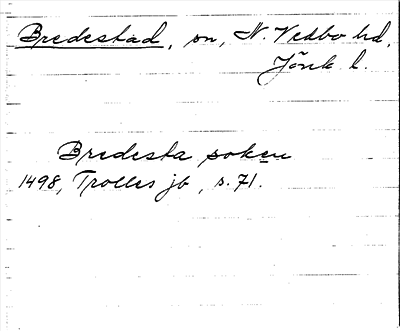 Bredestad, sn, N. Vedbo hd,
Jönk l.
Bredesta soken
1498, Trolles jb, s. 71.